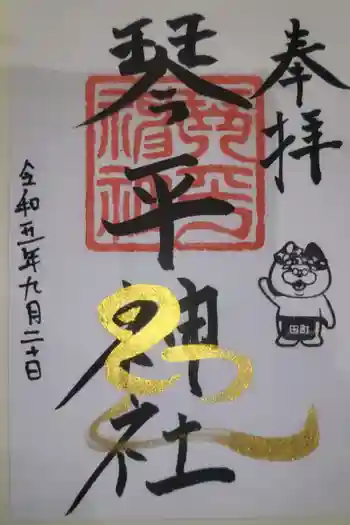 奉拝
琴平神社
令和五年九月二十日
田町